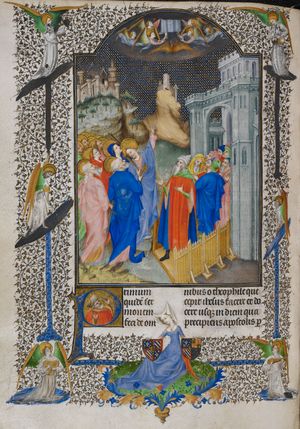 Primum
quidē ser
monem
feci de om
nibus o theophile que
cepit ihesus facere et do
cere usq; in diem qua
precipiens apostolis p